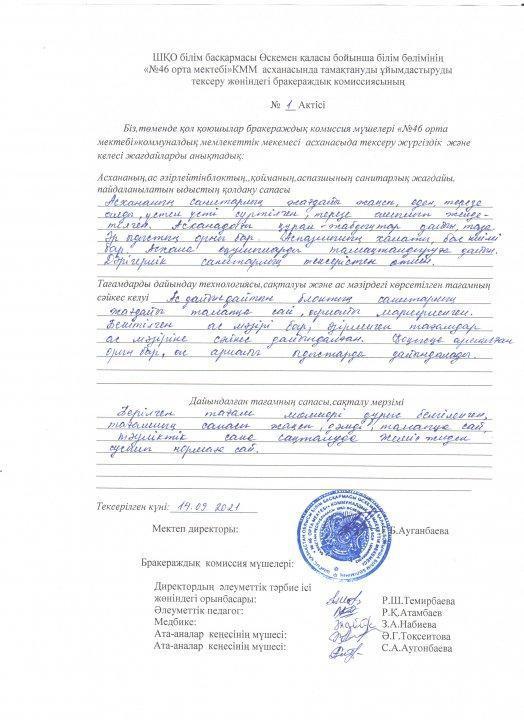 ШҚО білім басқармасы Өскемен қаласы бойынша білім бөлімінің
«№46 орта мектебі»КММ асханасында тамақтануды ұйымдастыруды
тексеру жөніндегі бракераждық комиссиясының
№ 1 Актісі
Біз,төменде қол қоюшылар бракераждық комиссия мүшелері «№46 орта
мектебі»коммуналдық мемлекеттік мекемесі асханасыда тексеру жүргіздік және
келесі жағдайларды анықтадық:
Асхананың,ас әзірлейтінблоктың,,қойманың,аспазшының санитарлық жағдайы,
пайдаланылатын ыдыстың қолдану сапасы
Асхананың санитарлық жағдайы жақсы, еден, терезе
алды, үстел үсті сүртілген, терезе
телген. Асханадағы құрал-жабдықтар таза
Әр ыдыстың орны бар. Аспазшының халаты, бас киімі
бар. Аспазшы оқушыларды тамақтандыруға дайын.
Дәрігерлік санитарлық тексерістен өткен.
Тағамдарды дайындау технологиясы,сақталуы және ас мәзірдегі көрсетілген тағамның
сәйкес келуі Ас дайындайтын блоктың санитарлық
жағдайы талапқа сай, маркерленген.
Бекітілген ас мәзірі бар, әзірленген тағамдар
ас мәзіріне сәйкес дайындалған. арналған
орын бар, ас арнайы ыдыстарда дайындалады.
Дайындалған тағамның сапасы,сақталу мерзімі
Берілген тағам мөлшері дұрыс белгіленген,
тағамның сапасы жақсы, дәмді, талапқа сай,
тәуліктік сақталуда. Жеміс-жидек
нормаға сай.
Тексерілген күні: 14.09 2021
Мектеп директоры: Б.Ауганбаева
Бракераждық комиссия мүшелері:
Директордың әлеуметтік тәрбие ісі
жөніндегі орынбасары: Р.Ш.Темирбаева
Әлеуметтік педагог: Р.Қ.Атамбаев
Медбике: З.А.Набиева
Ата-аналар кеңесінің мүшесі: Ә.Г.Токсеитова
Ата-аналар кеңесінің мүшесі: С.А.Ауғонбаева